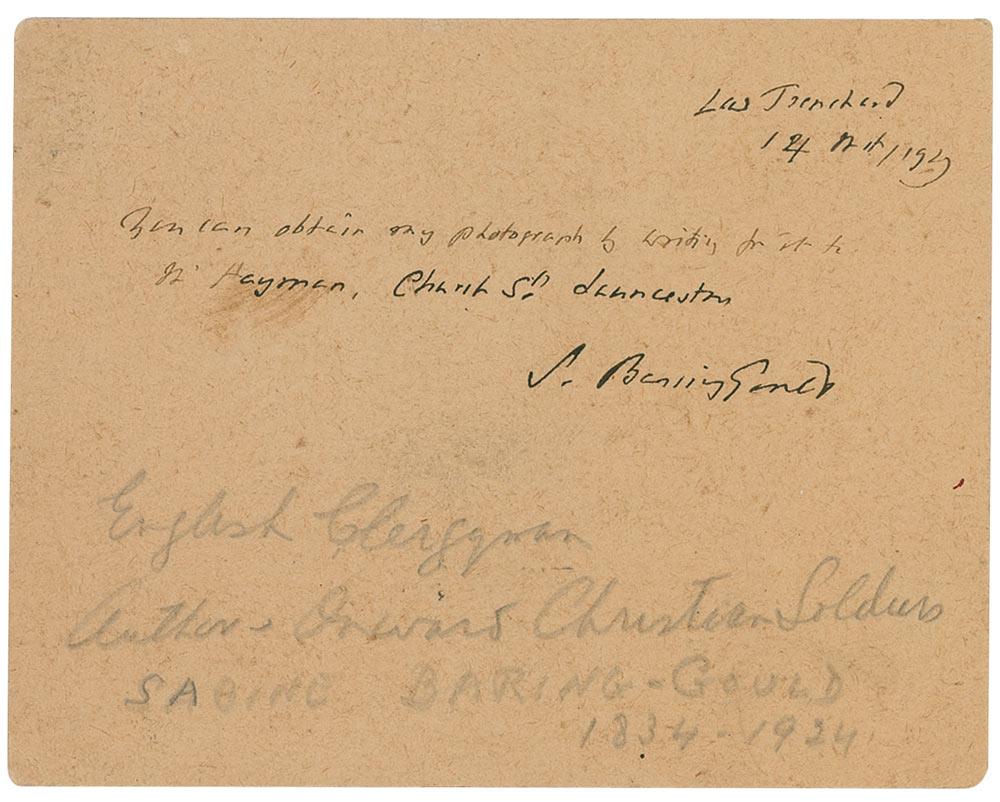 Lew Trenchard
You can obtain my photograph by writing for it to
Mr Hayman, Church St. Launceston
S. Baring Gould
English Clergyman
Author - Onward Christian Soldiers
SABINE BARING-GOULD
1834-1924